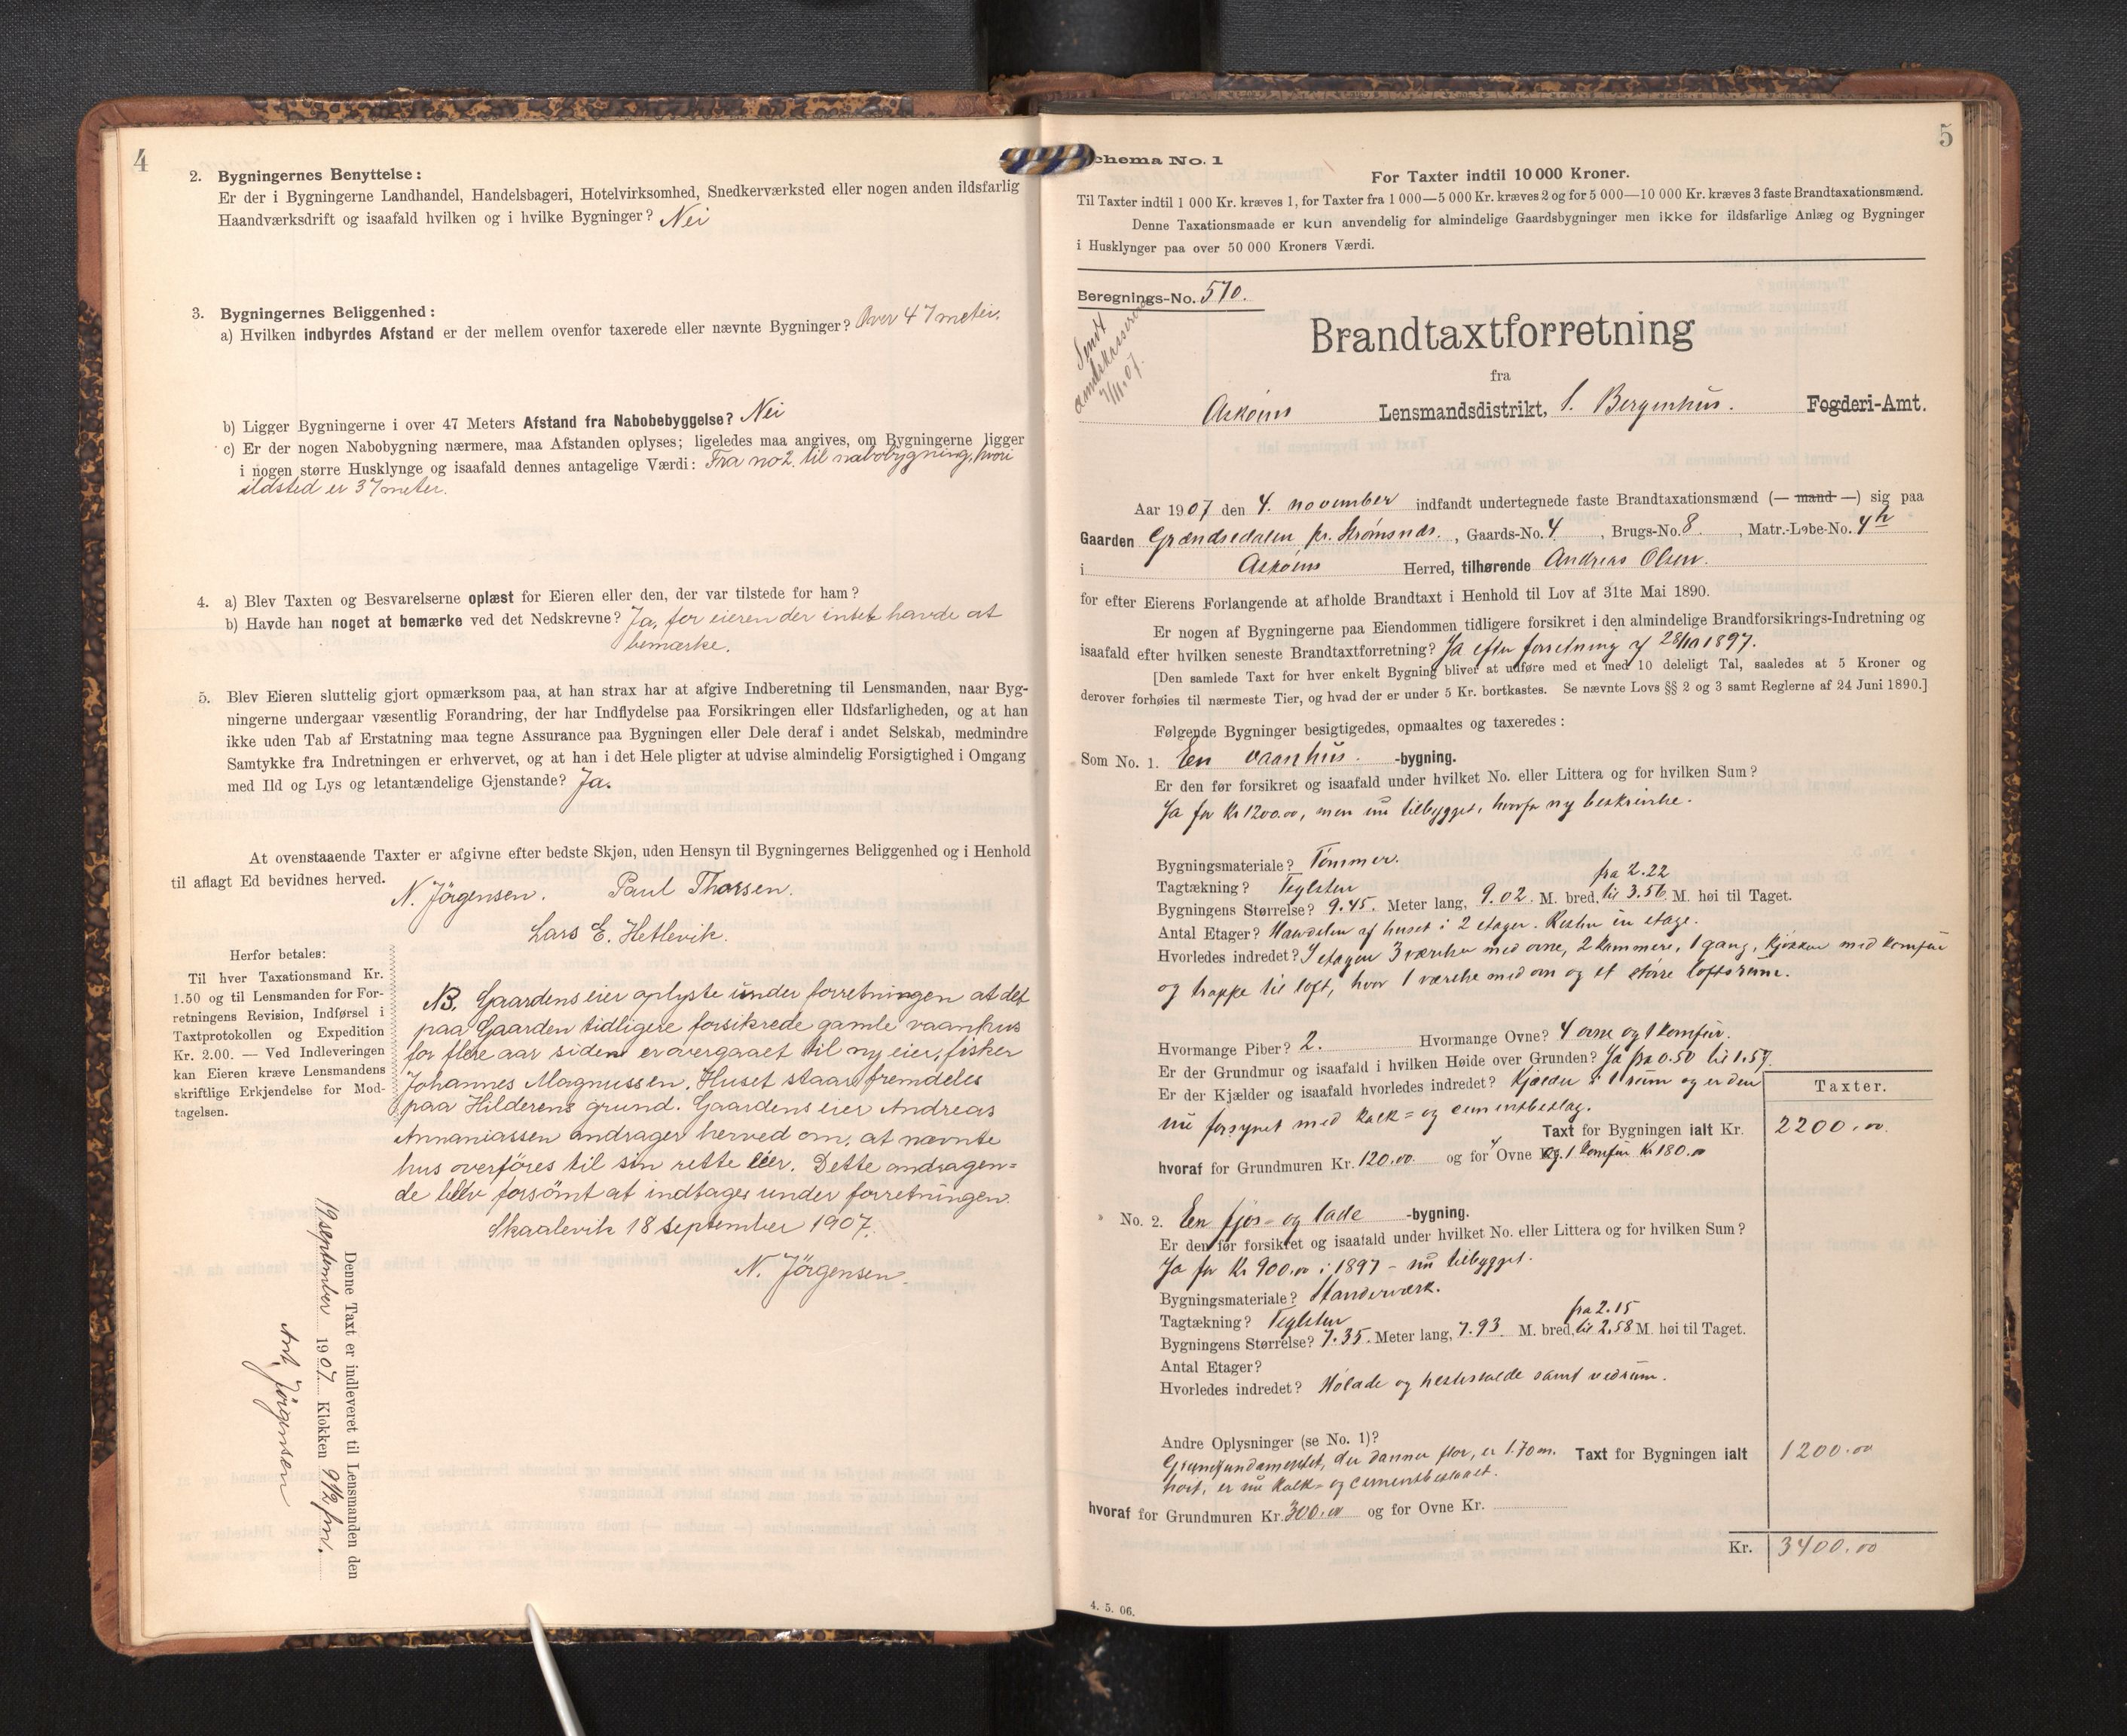 4
2. Bygningernes Benyttelse:
Er der i Bygningerne Landhandel, Handelsbageri, Hotelvirksomhed, Snedkerværksted eller nogen anden ildsfarlig
Haandværksdrift og isaafald hvilken og i hvilke Bygninger? Nei
3. Bygningernes Beliggenhed:
a) Hvilken indbyrdes Afstand er der mellem ovenfor taxerede eller nævnte Bygninger? Over 47 meter.
b) Ligger Bygningerne i over 47 Meters Afstand fra Nabobebyggelse? Nei
c) Er der nogen Nabobygning nærmere, maa Afstanden oplyses; ligeledes maa angives, om Bygningerne ligger
i nogen større Husklynge og isaafald dennes antagelige Værdi: Fra no 2. til nabobygning, hvori
ildsted er 37 meter.
4. a) Blev Taxten og Besvarelserne oplæst for Eieren eller den, der var tilstede for ham?
b) Havde han noget at bemærke ved det Nedskrevne? Ja, for eieren der intet havde at
bemærke.
5. Blev Eieren sluttelig gjort opmærksom paa, at han strax har at afgive Indberetning til Lensmanden, naar Byg-
ningerne undergaar væsentlig Forandring, der har Indflydelse paa Forsikringen eller Ildsfarligheden, og at han
ikke uden Tab af Erstatning maa tegne Assurance paa Bygningen eller Dele deraf i andet Selskab, medmindre
Samtykke fra Indretningen er erhvervet, og at han i det Hele pligter at udvise almindelig Forsigtighed i Omgang
med Ild og Lys og letantændelige Gjenstande? Ja.
At ovenstaaende Taxter er afgivne efter bedste Skjøn, uden Hensyn til Bygningernes Beliggenhed og i Henhold
til aflagt Ed bevidnes herved.
N. Jörgensen. Paul Thorsen.
Lars E. Hetlevik.
Herfor betales:
Til hver Taxationsmand Kr.
1.50 og til Lensmanden for For-
retningens Revision, Indførsel i
Taxtprotokollen og Expedition
Kr. 2.00. — Ved Indleveringen
kan Eieren kræve Lensmandens
skriftlige Erkjendelse for Mod-
tagelsen.
NB. Gaardens eier oplyste under forretningen at det
paa Gaarden tidligere forsikrede gamle vaanhus
for flere aar siden er overgaaet til ny eier, fisker
Johannes Magnussen. Huset staar fremdeles
paa Hilderens grund. Gaardens eier Andreas
Annaniassen andrager herved om, at nævnte
hus overföres til sin rette eier. Dette andragen=
de blev forsömt at indtages under forretningen.
Skaalevik 18 september 1907.
N. Jörgensen.
Denne Taxt er indleveret til Lensmanden den
19 september 1907. Klokken 9 1/2 fm.
Jörgensen
5
chema No. 1
For Taxter indtil 10 000 Kroner.
Til Taxter indtil 1 000 Kr. kræves 1, for Taxter fra 1 000—5 000 Kr. kræves 2 og for 5 000—10 000 Kr. kræves 3 faste Brandtaxationsmænd.
Denne Taxationsmaade er kun anvendelig for almindelige Gaardsbygninger men ikke for ildsfarlige Anlæg og Bygninger
i Husklynger paa over 50 000 Kroners Værdi.
Beregnings-No. 510.
Sendt
amtskasseren
7/11.07.
Brandtaxtforretning
fra
Askøens Lensmandsdistrikt, S. Bergenhus. Fogderi-Amt.
Aar 1907 den 4. november indfandt undertegnede faste Brandtaxationsmænd (— mand —) sig paa
Gaarden Grændsedalen pr. Strømsnes., Gaards-No. 4, Brugs-No. 8., Matr.-Løbe-No. 4h
i Askøens Herred, tilhørende Andreas Olsen.
for efter Eierens Forlangende at afholde Brandtaxt i Henhold til Lov af 31te Mai 1890.
Er nogen af Bygningerne paa Eiendommen tidligere forsikret i den almindelige Brandforsikrings-Indretning og
isaafald efter hvilken seneste Brandtaxtforretning? Ja efter forretning af 28/10 1897.
[Den samlede Taxt for hver enkelt Bygning bliver at udføre med et med 10 deleligt Tal, saaledes at 5 Kroner og
derover forhøies til nærmeste Tier, og hvad der er under 5 Kr. bortkastes. Se nævnte Lovs §§ 2 og 3 samt Reglerne af 24 Juni 1890.]
Følgende Bygninger besigtigedes, opmaaltes og taxeredes:
Som No. 1. En vaanhus. -bygning.
Er den før forsikret og isaafald under hvilket No. eller Littera og for hvilken Sum?
Ja for Kr 1200.00, men nu tilbygget, hvorfor ny beskrivelse.
Bygningsmateriale? Tømmer.
Tagtækning? Teglsten
fra 2.22
Bygningens Størrelse? 9.45. Meter lang, 9.02. M. bred, til 3.56 M. høi til Taget.
Antal Etager? Havdelen af huset i 2 etager. Resten en etage.
Hvorledes indredet? I etagen 3 værelser med ovne, 2 kammers, 1 gang, kjøkken med komfur
og trappe til loft, hvor 1 værelse med ovn og et større loftsrum.
Hvormange Piber? 2. Hvormange Ovne? 4 ovne og 1 komfur.
Er der Grundmur og isaafald i hvilken Høide over Grunden? Ja fra 0.50 til 1.57.
Er der Kjælder og isaafald hvorledes indredet? Kjælder i 1 rum og er den
nu forsynet med kalk= og cementbeslag.
Taxter.
Taxt for Bygningen ialt Kr. 2200.00.
hvoraf for Grundmuren Kr. 120.00 og for 4 Ovne og 1 komfur Kr 180.00
No. 2. En fjøs- og lade -bygning.
Er den før forsikret og isaafald under hvilket No. eller Littera og for hvilken Sum?
Ja for Kr 900.00 i 1897 - nu tilbygget.
Bygningsmateriale? Standerværk.
Tagtækning? Teglsten
fra 2.15
Bygningens Størrelse? 7.35. Meter lang, 7.93 M. bred, til 2.58 M. høi til Taget.
Antal Etager?
Hvorledes indredet? Hølade og hestestalde samt vedrum.
Andre Oplysninger (se No. 1)?
Grundfundamentet, der danner flor, er 1.70 m.
høit, er nu kalk- og cementbeslaaet.
Taxt for Bygningen ialt 1200.00
hvoraf for Grundmuren Kr. 300.00 og for Ovne Kr.
Kr. 3400.00
4. 5. 06.